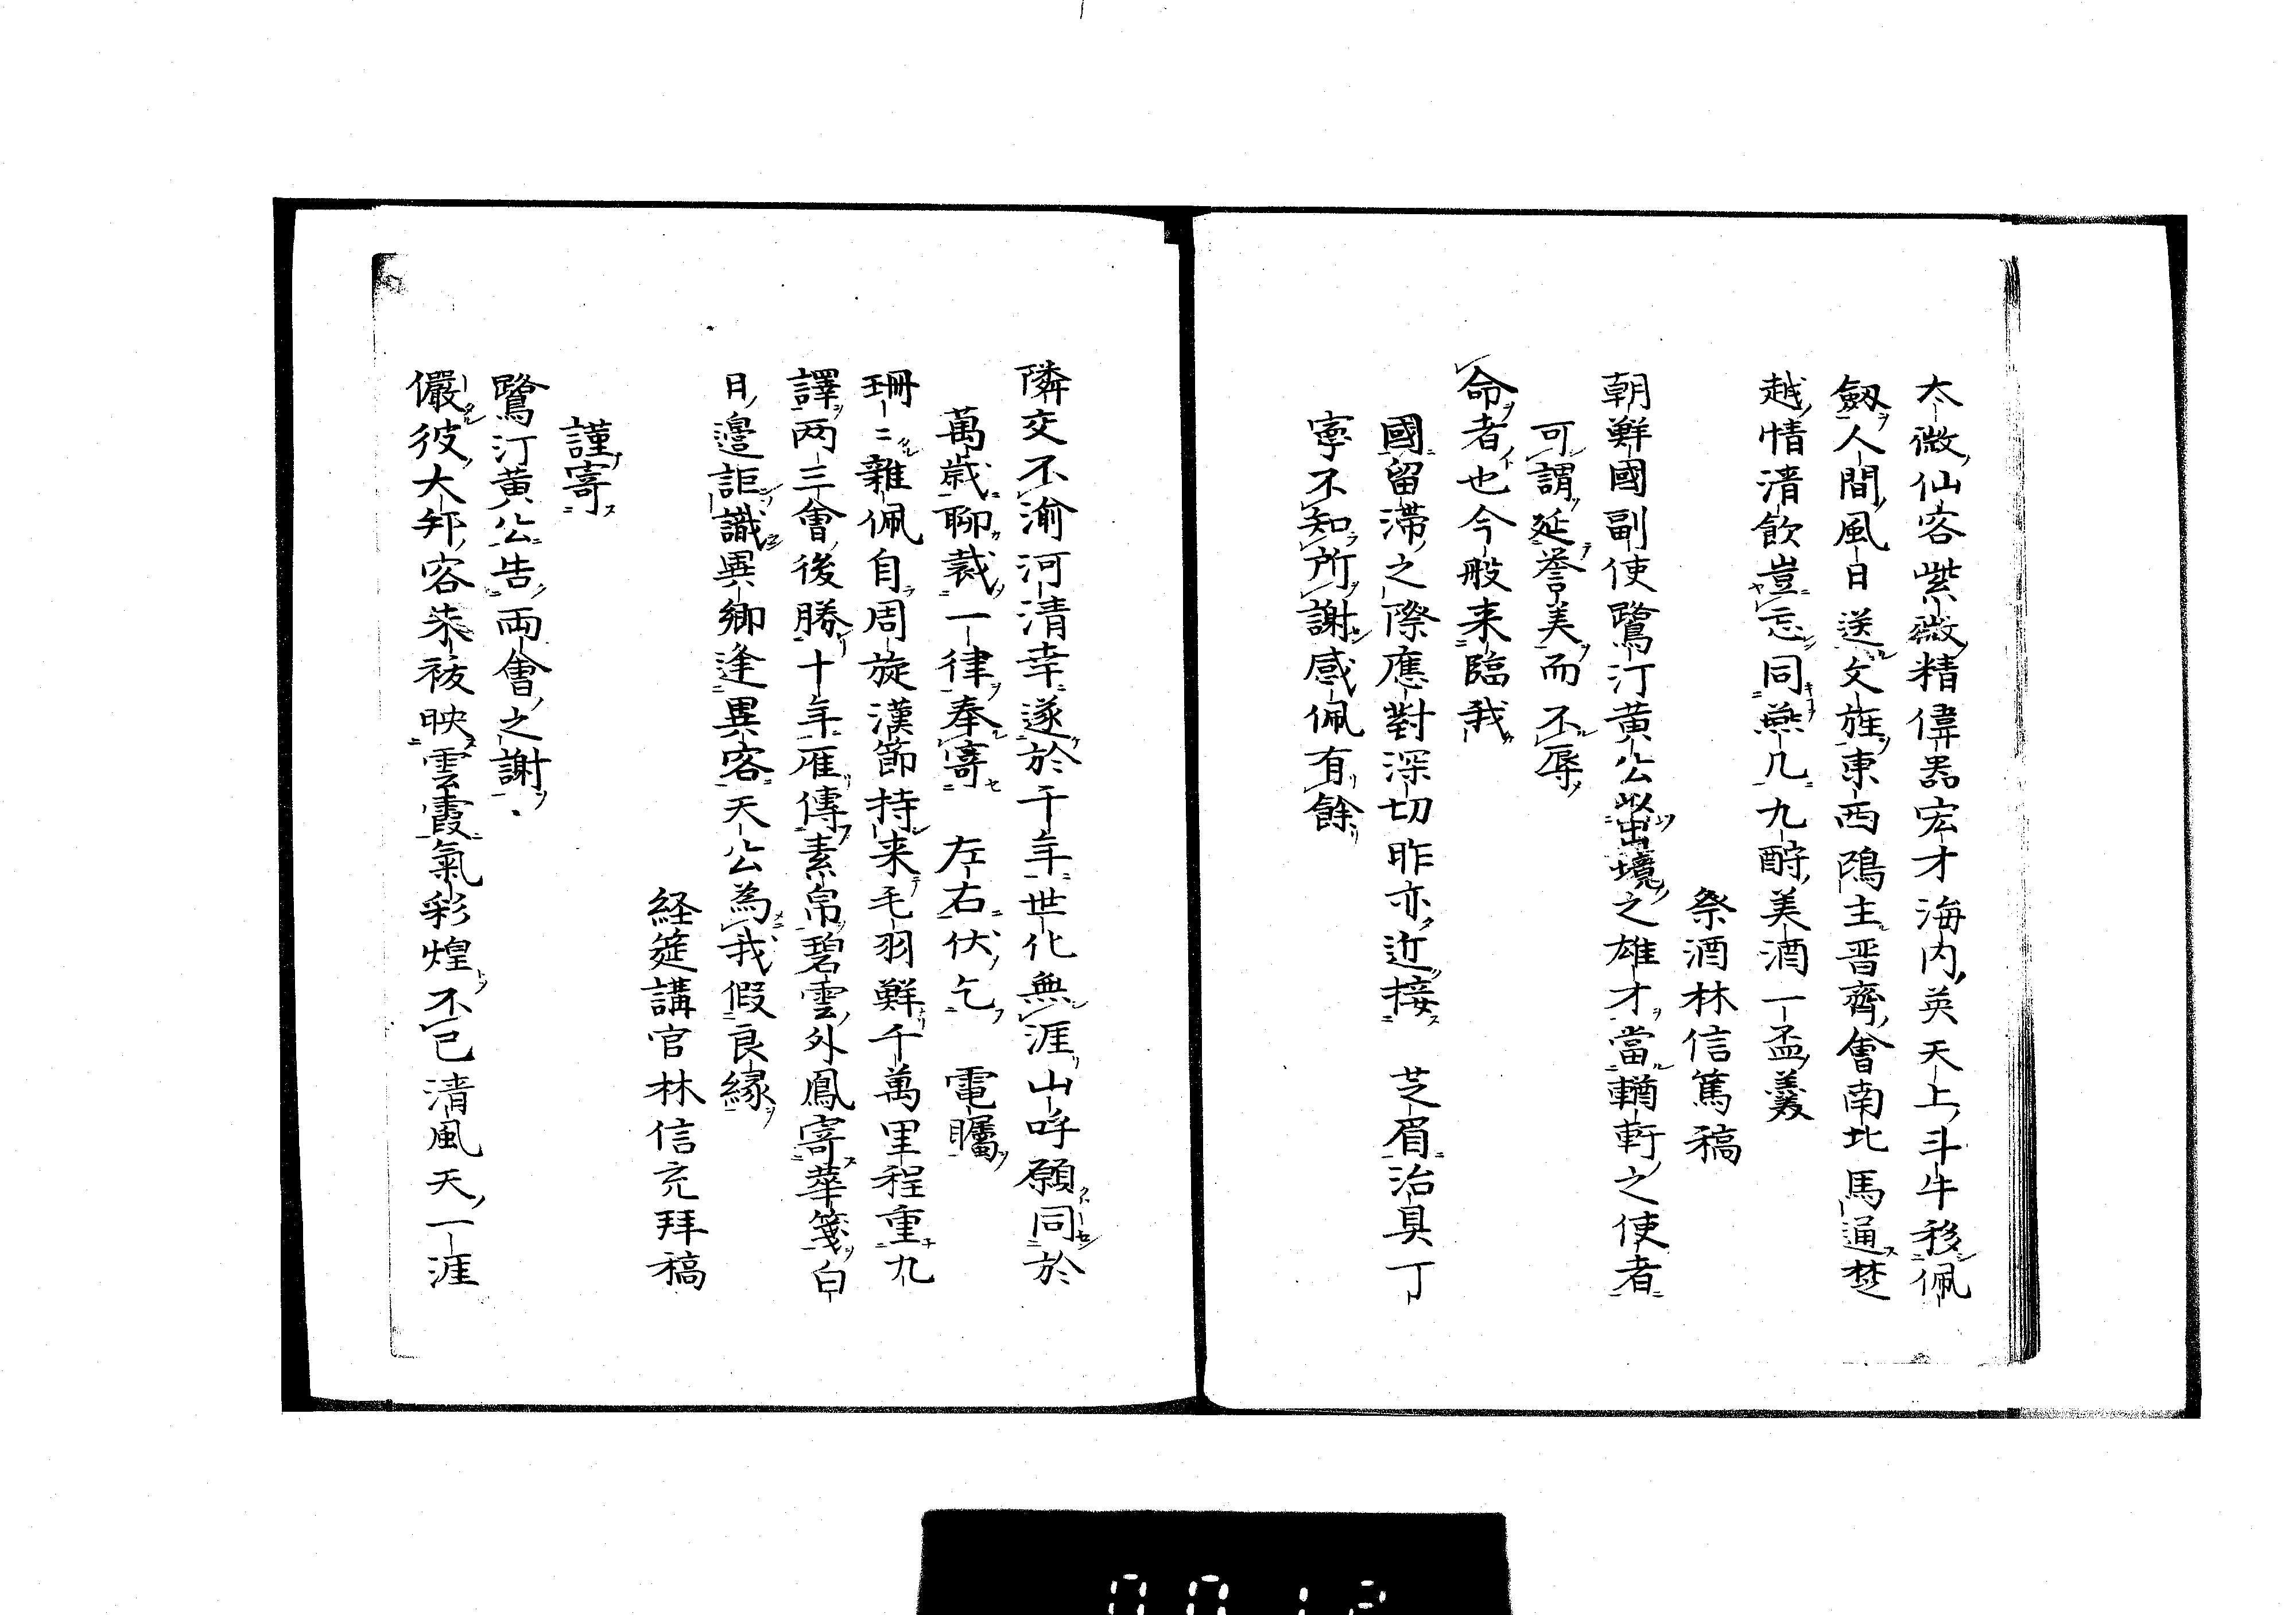 太微仙客紫薇精偉器宏才海内英天上斗牛移佩
劔人間風日送文旌東西鴻主晋齊會南北馬通楚
越情清飲豈忘同燕几九酧美酒一盃羹
祭酒林信篤稿
朝鮮國副使鷺汀黄公出境之雄才當輶軒之使者
可謂延誉美而不辱
命者也今般来臨我
國留滞之際應對深切昨亦近接　芝眉治具丁
寧不知所謝感佩有餘
隣交不渝河清幸遂於千年世化無涯山呼願同於
萬歳聊裁一律奉寄　左右伏乞　電矚
珊〻雜佩自周旋漢節持来毛羽鮮千萬里程重九
譯两三會後勝十年雁傳素帛碧雲外鳳寄華箋白
日邉詎識異郷逢異客天公為我假良縁
経筵講官林信充拜稿
謹寄
鷺汀黄公告両會之謝
儼彼大邦客朱袚映雲霞氣彩煌不已清風天一涯
0012